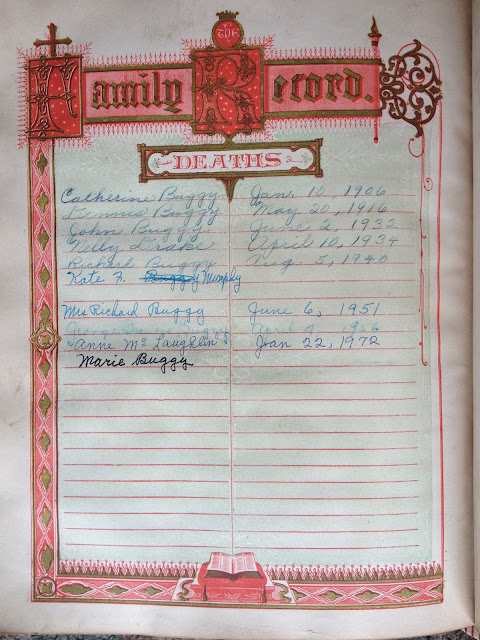 THE
Family Record.
DEATHS
Catherine Buggy Jan. 10, 1906
Dennis Buggy May 20, 1916
John Buggy June 2, 1932
Nelly Drake April 10, 1934
Richard Buggy Aug. 5, 1940
Kate F. Buggy Murphy
Mrs Richard Buggy June 6, 1951
George Buggy April
Anne Mc Laughlin Jan 22, 1972
Marie Buggy